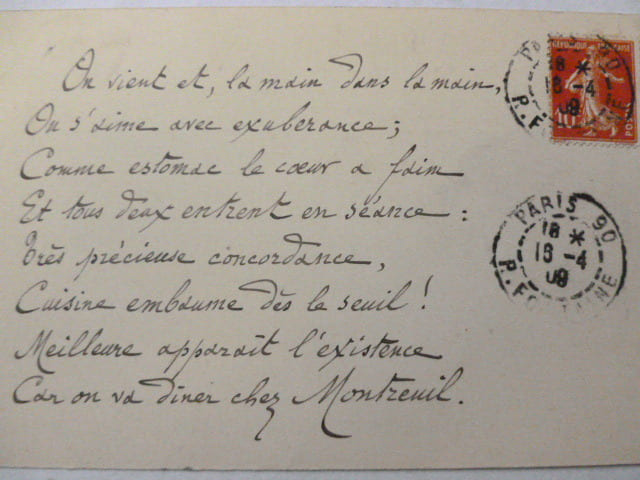 On vient et, la main dans la main,
On s'aime avec exubérance ;
Comme estomac le cœur a faim
Et tous deux entrent en séance :
Très précieuse concordance,
Cuisine embaume dès le seuil !
Meilleure apparaît l'existence
Car on va dîner chez Montreuil.
RÉPUBLIQUE FRANÇAISE
10
POSTES
18 *
16 -4
09
PARIS 90
18 *
16 -4
09